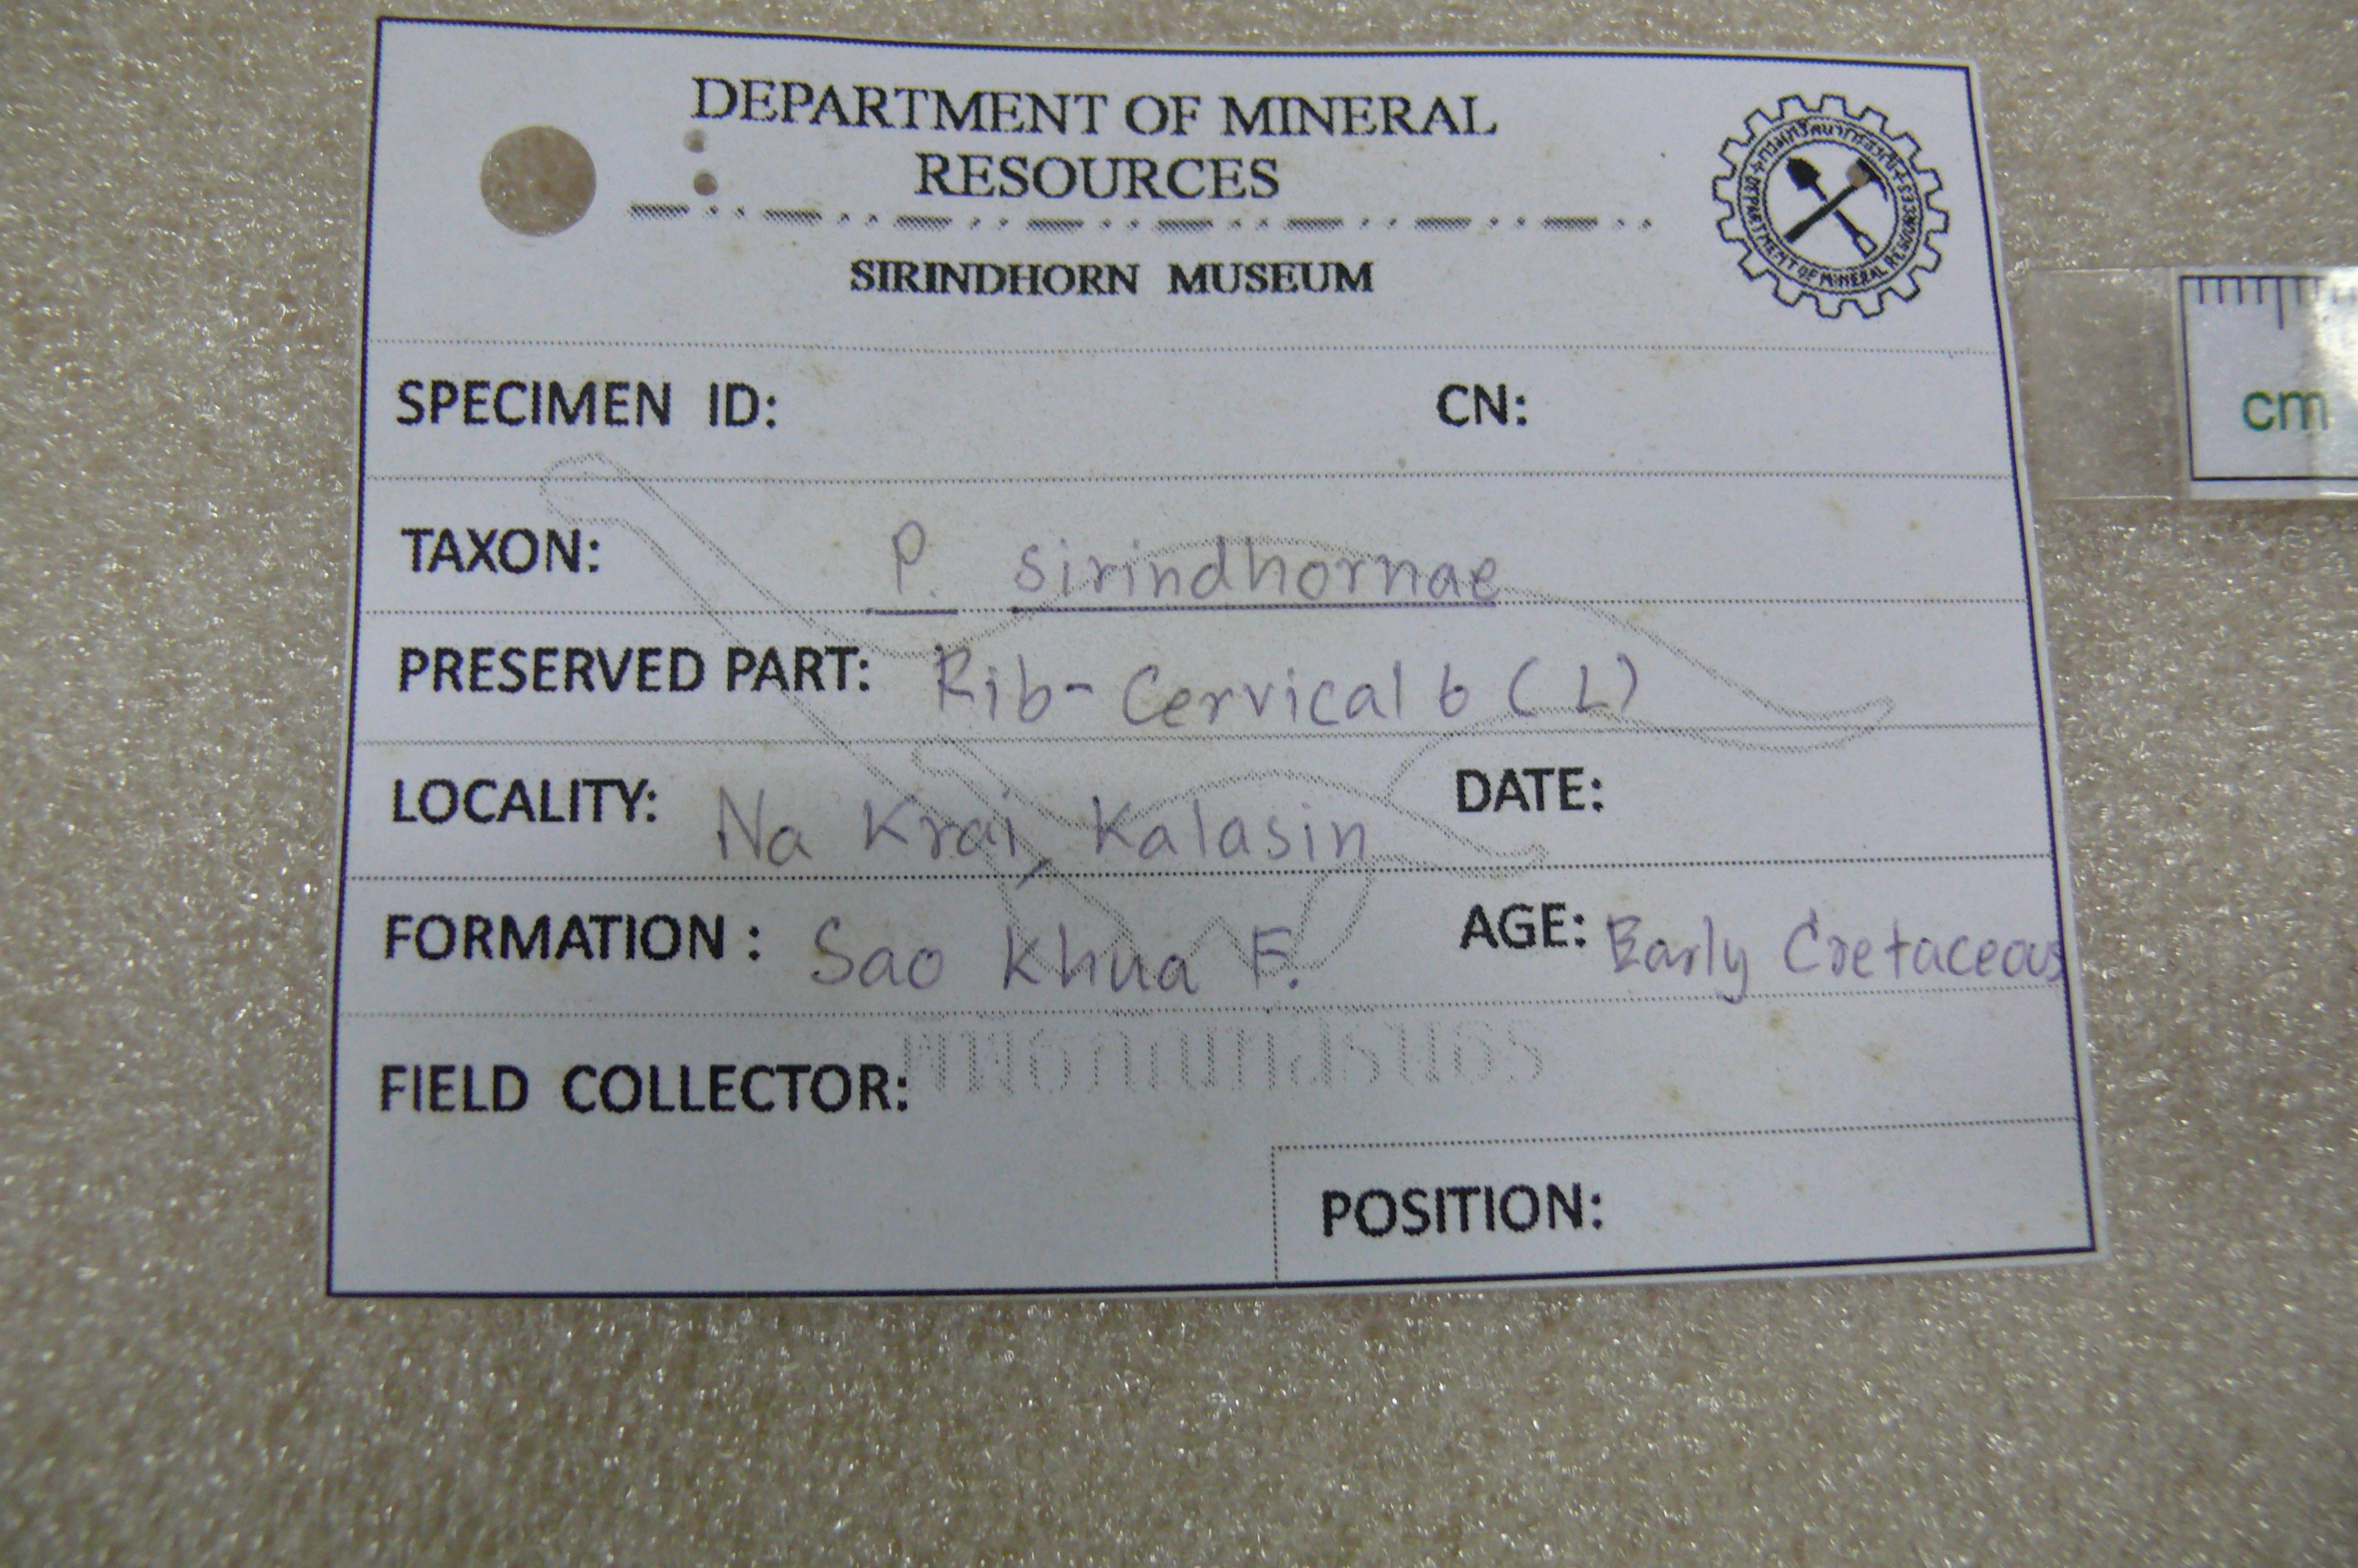 DEPARTMENT OF MINERAL
RESOURCES
SIRINDHORN MUSEUM
DEPARTMENT OF MINERAL RESOURCES
cm
SPECIMEN ID: CN:
TAXON: P. sirindhornae
PRESERVED PART: Rib-Cervical 6 (L)
LOCALITY: Na Krai, Kalasin DATE:
FORMATION : Sao Khua F. AGE: Early Cretaceous
FIELD COLLECTOR:
POSITION: